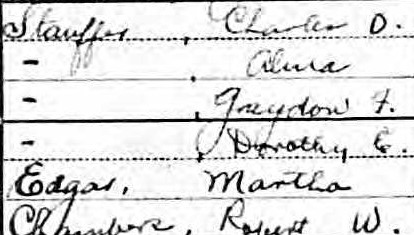 Stauffer, Charles D.
- , Alma
- , Graydon F.
- , Dorothy E.
Edgar, Martha
Chambers, Robert W.